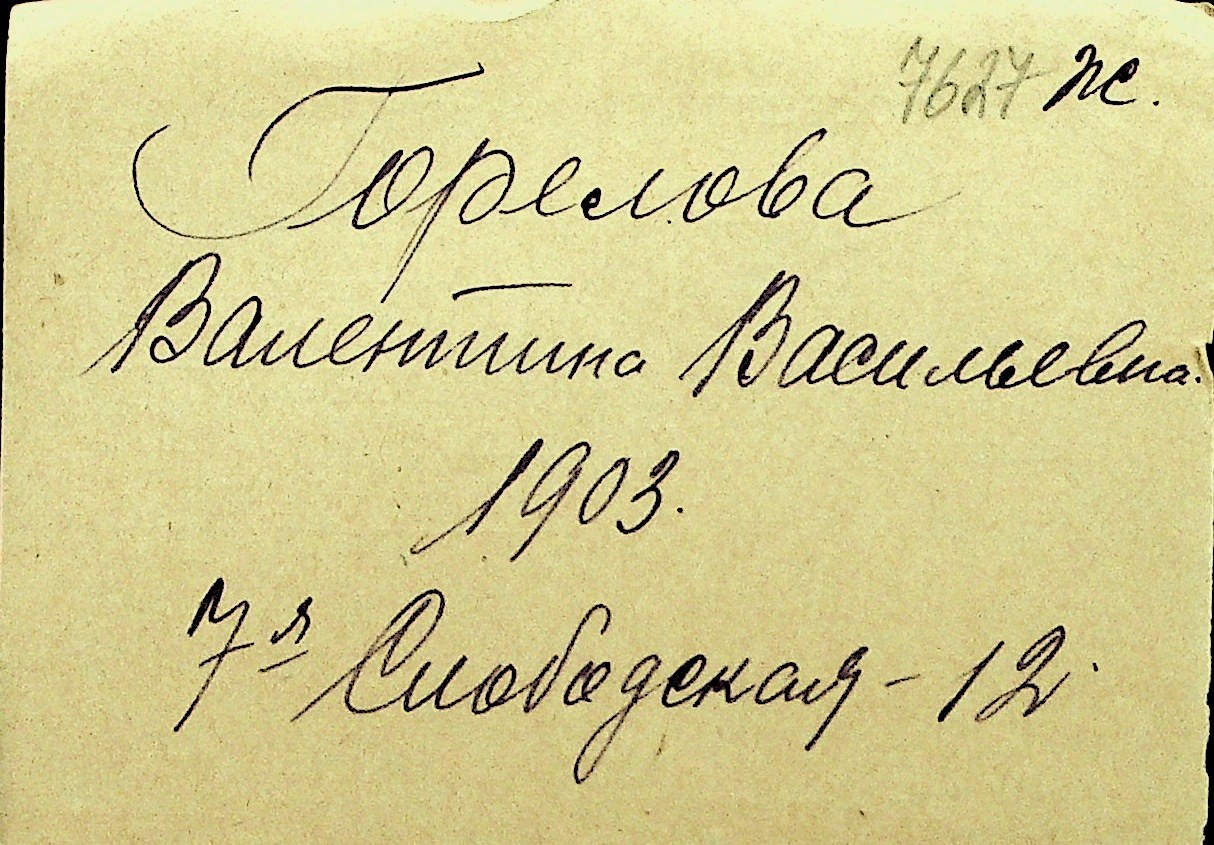 7627 ж.
Горелова
Валентина Васильевна.
1903.
7я Слободская - 12.